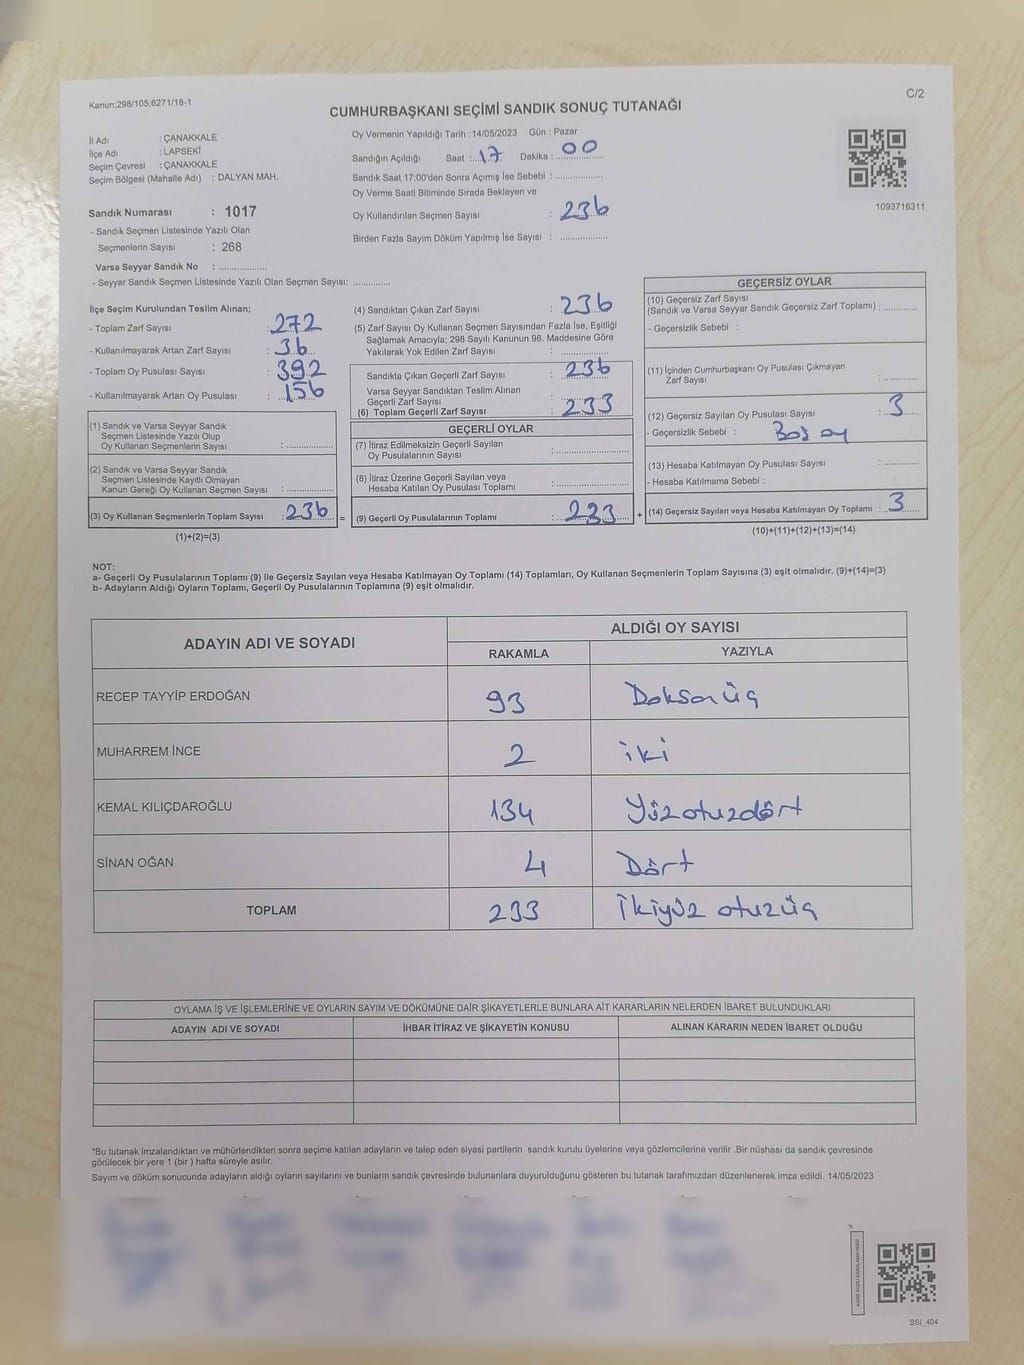 Kanun;298/105;6271/18-1
C/2
CUMHURBAŞKANI SEÇİMİ SANDIK SONUÇ TUTANAĞI
İl Adı : ÇANAKKALE
İlçe Adı : LAPSEKİ
Seçim Çevresi : ÇANAKKALE
Seçim Bölgesi (Mahalle Adı) : DALYAN MAH.
Sandık Numarası : 1017
- Sandık Seçmen Listesinde Yazılı Olan
Seçmenlerin Sayısı : 268
Varsa Seyyar Sandık No : ....................
- Seyyar Sandık Seçmen Listesinde Yazılı Olan Seçmen Sayısı: ..............
Oy Vermenin Yapıldığı Tarih : 14/05/2023 Gün : Pazar
Sandığın Açıldığı Saat : 17 Dakika : 00
Sandık Saat 17:00'den Sonra Açımış İse Sebebi : ....................
Oy Verme Saati Bitiminde Sırada Bekleyen ve
Oy Kullandırılan Seçmen Sayısı : 236
Birden Fazla Sayım Döküm Yapılmış İse Sayısı : ....................
1093716311
İlçe Seçim Kurulundan Teslim Alınan;
- Toplam Zarf Sayısı : 272
- Kullanılmayarak Artan Zarf Sayısı : 36
- Toplam Oy Pusulası Sayısı : 392
- Kullanılmayarak Artan Oy Pusulası : 156
(1) Sandık ve Varsa Seyyar Sandık
Seçmen Listesinde Yazılı Olup
Oy Kullanan Seçmenlerin Sayısı : ....................
(2) Sandık ve Varsa Seyyar Sandık
Seçmen Listesinde Kayıtlı Olmayan
Kanun Gereği Oy Kullanan Seçmen Sayısı : ....................
(3) Oy Kullanan Seçmenlerin Toplam Sayısı : 236 =
(1)+(2)=(3)
(4) Sandıktan Çıkan Zarf Sayısı : 236
(5) Zarf Sayısı Oy Kullanan Seçmen Sayısından Fazla İse, Eşitliği
Sağlamak Amacıyla; 298 Sayılı Kanunun 98. Maddesine Göre
Yakılarak Yok Edilen Zarf Sayısı : ....................
Sandıkta Çıkan Geçerli Zarf Sayısı : 236
Varsa Seyyar Sandıktan Teslim Alınan
Geçerli Zarf Sayısı
(6) Toplam Geçerli Zarf Sayısı : 233
GEÇERLİ OYLAR
(7) İtiraz Edilmeksizin Geçerli Sayılan
Oy Pusulalarının Sayısı : ....................
(8) İtiraz Üzerine Geçerli Sayılan veya
Hesaba Katılan Oy Pusulası Toplamı : ....................
(9) Geçerli Oy Pusulalarının Toplamı : 233 +
GEÇERSİZ OYLAR
(10) Geçersiz Zarf Sayısı
(Sandık ve Varsa Seyyar Sandık Geçersiz Zarf Toplamı) : ..............
- Geçersizlik Sebebi :
(11) İçinden Cumhurbaşkanı Oy Pusulası Çıkmayan
Zarf Sayısı : ..............
(12) Geçersiz Sayılan Oy Pusulası Sayısı : 3
- Geçersizlik Sebebi : Boş oy
(13) Hesaba Katılmayan Oy Pusulası Sayısı : ..............
- Hesaba Katılmama Sebebi :
(14) Geçersiz Sayılan veya Hesaba Katılmayan Oy Toplamı : 3
(10)+(11)+(12)+(13)=(14)
NOT:
a- Geçerli Oy Pusulalarının Toplamı (9) ile Geçersiz Sayılan veya Hesaba Katılmayan Oy Toplamı (14) Toplamları, Oy Kullanan Seçmenlerin Toplam Sayısına (3) eşit olmalıdır. (9)+(14)=(3)
b- Adayların Aldığı Oyların Toplamı, Geçerli Oy Pusulalarının Toplamına (9) eşit olmalıdır.
ADAYIN ADI VE SOYADI ALDIĞI OY SAYISI
RAKAMLA YAZIYLA
RECEP TAYYİP ERDOĞAN 93 Doksanüç
MUHARREM İNCE 2 iki
KEMAL KILIÇDAROĞLU 134 Yüzotuzdört
SİNAN OĞAN 4 Dört
TOPLAM 233 İkiyüz otuzüç
OYLAMA İŞ VE İŞLEMLERİNE VE OYLARIN SAYIM VE DÖKÜMÜNE DAİR ŞİKAYETLERLE BUNLARA AİT KARARLARIN NELERDEN İBARET BULUNDUKLARI
ADAYIN ADI VE SOYADI İHBAR İTİRAZ VE ŞİKAYETİN KONUSU ALINAN KARARIN NEDEN İBARET OLDUĞU
*Bu tutanak imzalandıktan ve mühürlendikten sonra seçime katılan adayların ve talep eden siyasi partilerin sandık kurulu üyelerine veya gözlemcilerine verilir .Bir nüshası da sandık çevresinde
görülecek bir yere 1 (bir ) hafta süreyle asılır.
Sayım ve döküm sonucunda adayların aldığı oyların sayılarını ve bunların sandık çevresinde bulunanlara duyurulduğunu gösteren bu tutanak tarafımızdan düzenlenerek imza edildi. 14/05/2023
SSI_404